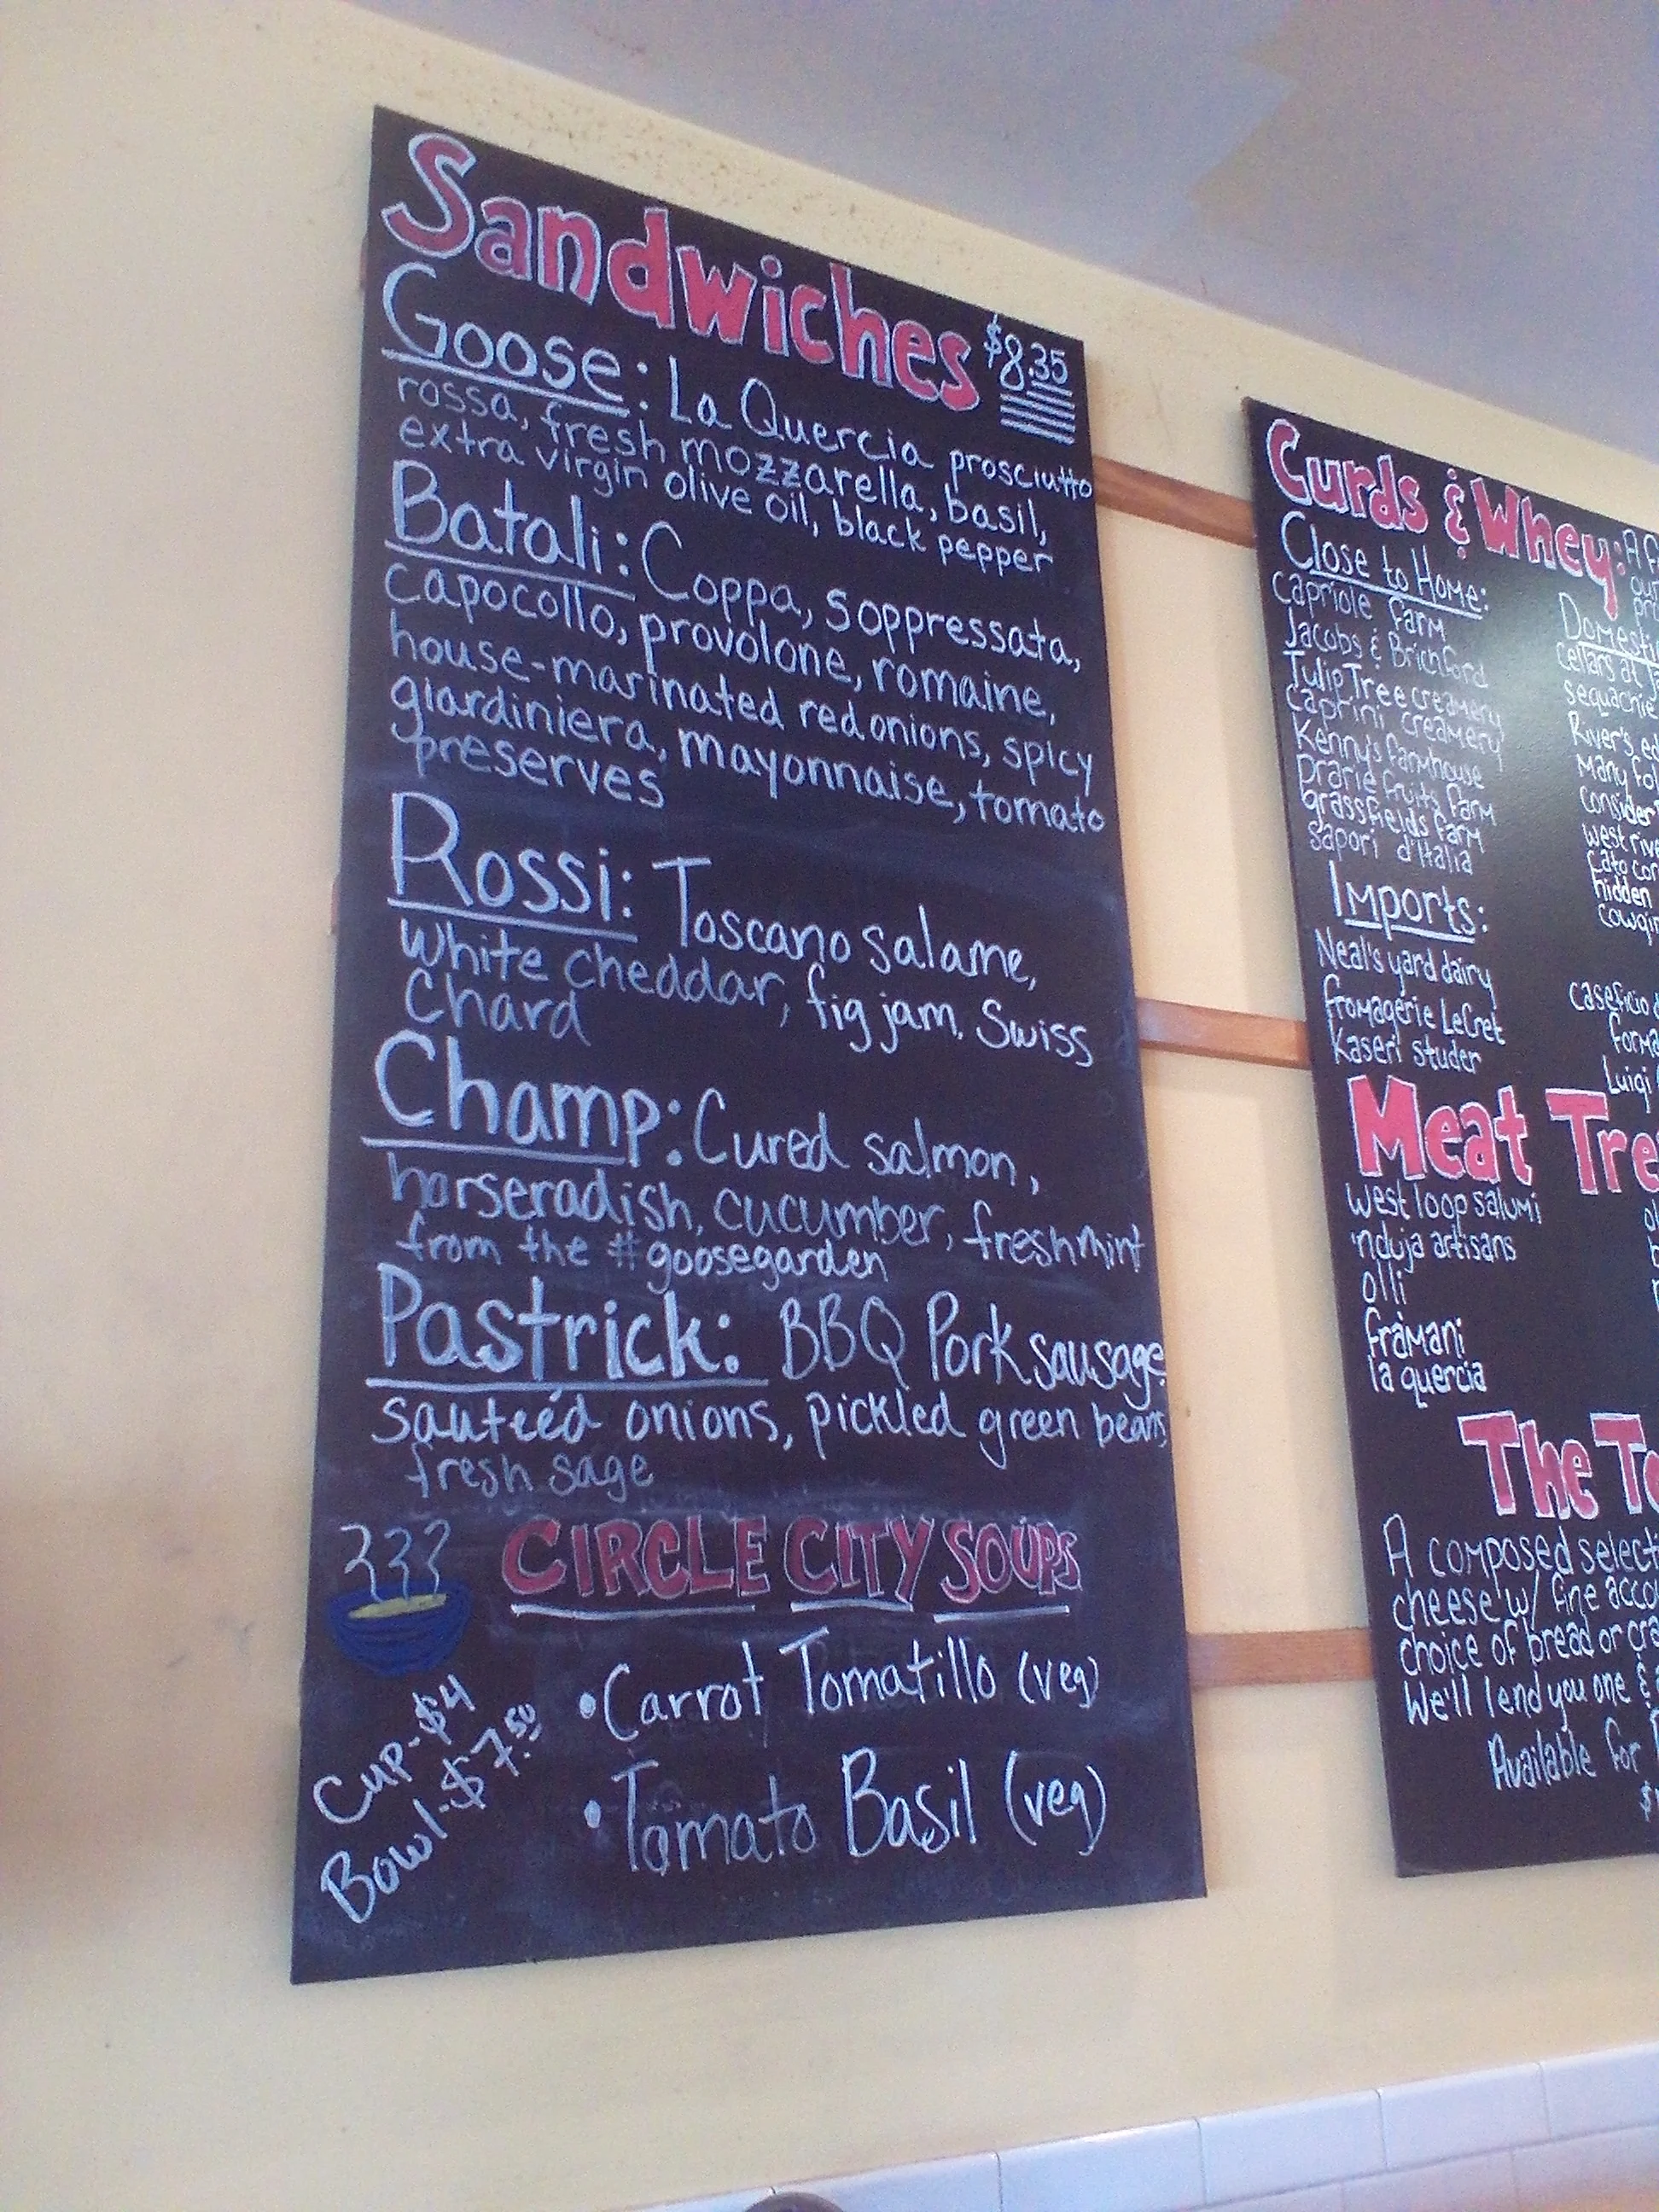 Sandwiches $8.35
Goose: La Quercia prosciutto
rossa, fresh mozzarella, basil,
extra virgin olive oil, black pepper
Batali: Coppa, Soppressata,
capocollo, provolone, romaine,
house-marinated red onions, spicy
giardiniera, mayonnaise, tomato
preserves
Rossi: Toscano salame,
white cheddar, fig jam, Swiss
Chard
Champ: Cured salmon,
horseradish, cucumber, fresh mint
from the #goosegarden
Pastrick: BBQ Pork sausage
sauteéd onions, pickled green beans,
fresh sage
CIRCLE CITY SOUPS
• Carrot Tomatillo (veg)
• Tomato Basil (veg)
Cup - $4
Bowl - $7.50
Curds & Whey:
Close to Home:
capriole farm
Jacobs & Brichford
Tulip Tree creamery
caprini creamery
Kenny's farmhouse
prarie fruits farm
grassfields farm
sapori d'Italia
Imports:
Neal's yard dairy
fromagerie LeCret
Kaseri studer
cellars at
sequachie
River's
Many
consider
west
hidden
caseficio
Luigi
Meat
west loop salumi
'nduja artisans
olli
framani
la quercia
The
A composed
cheese w/ fine
choice of bread or
We'll lend you one &
Available for